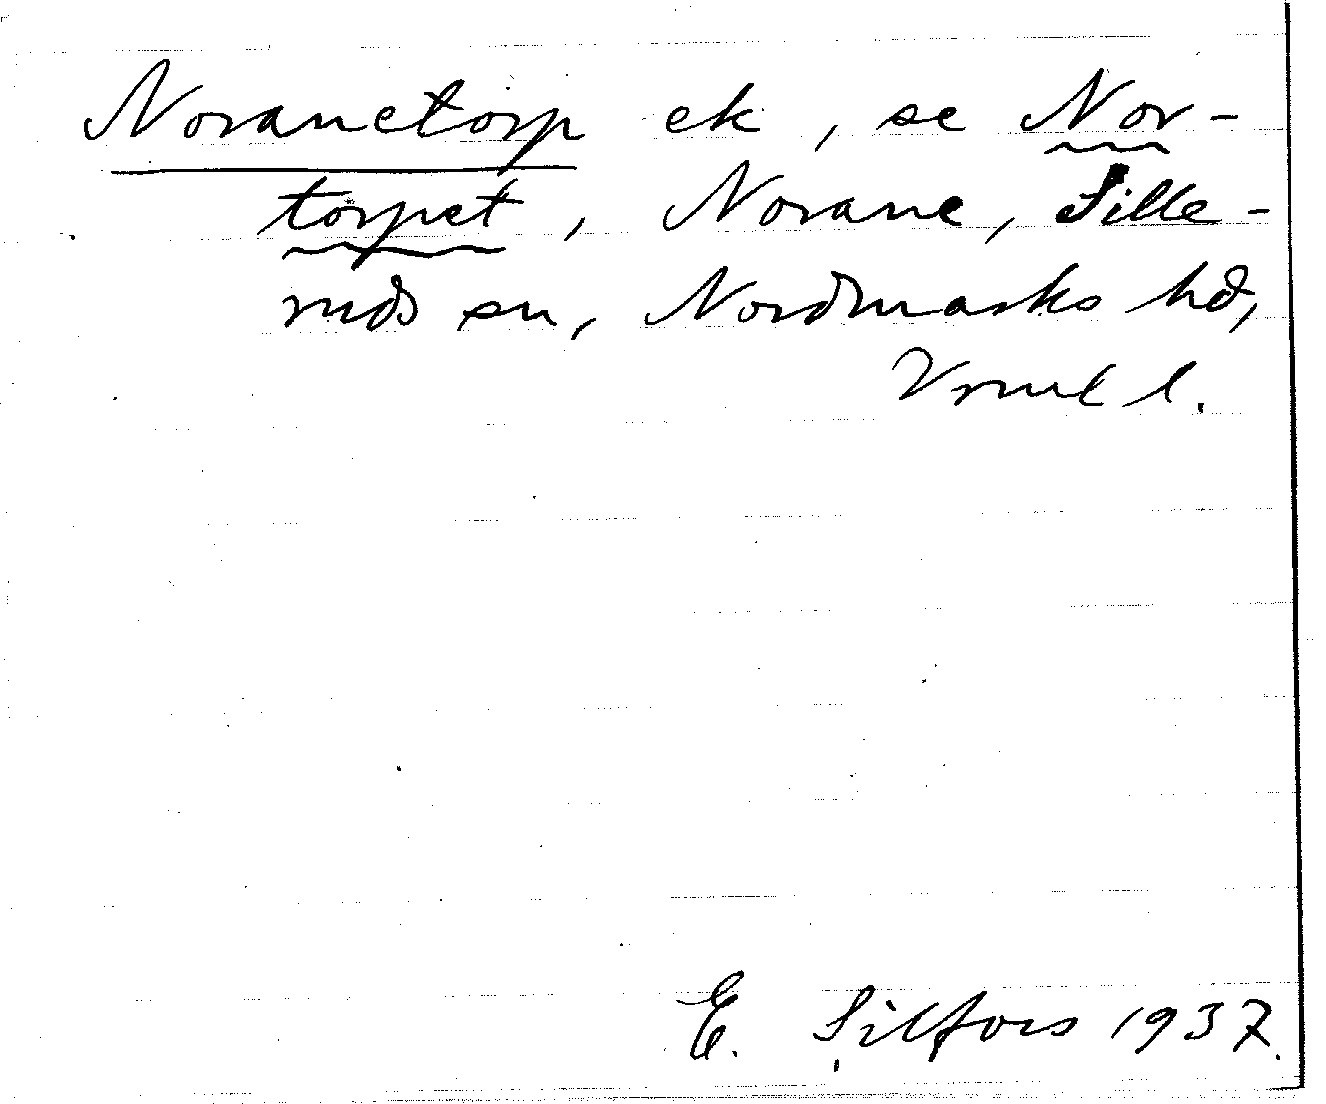 Noranetorp ek, se Nor-
torpet, Norane, Sille-
ruds sn, Nordmarks hd,
Vrml l.
E. Silfors 1937.